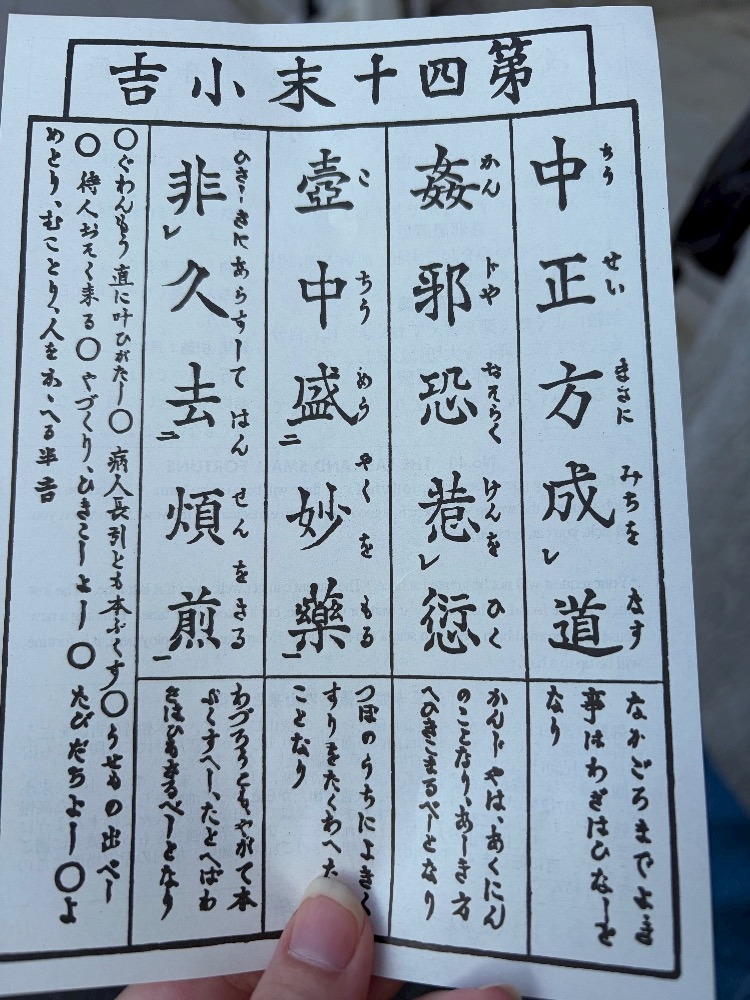 第四十末小吉
ちう せい まさに みちを なす
中正方成レ道
なかごろまでよき
事はわざはひなしと
なり
かん じや おそらく けんを ひく
姦邪恐惹レ愆
かんじやは、あくにん
のことなり、あしき方
へひきこまるべしとなり
こ ちう めう やくを もる
壺中盛二妙藥一
つぼのうちによきく
すりをたくわへた
ことなり
ひさしきにあらずして はん せんをさる
非レ久去二煩煎一
わづろうともやがて本
ぶくすべし、たとへばわ
ざはひもさるべしとなり
〇ぐわんもう 直に叶ひがたし〇 病人長引とも本ぶくす〇うせもの出べし
〇 待人おそく来る〇やづくり、ひきこしよし〇 たびだちよし〇よ
めとり、むことり、人をかゝへる半吉